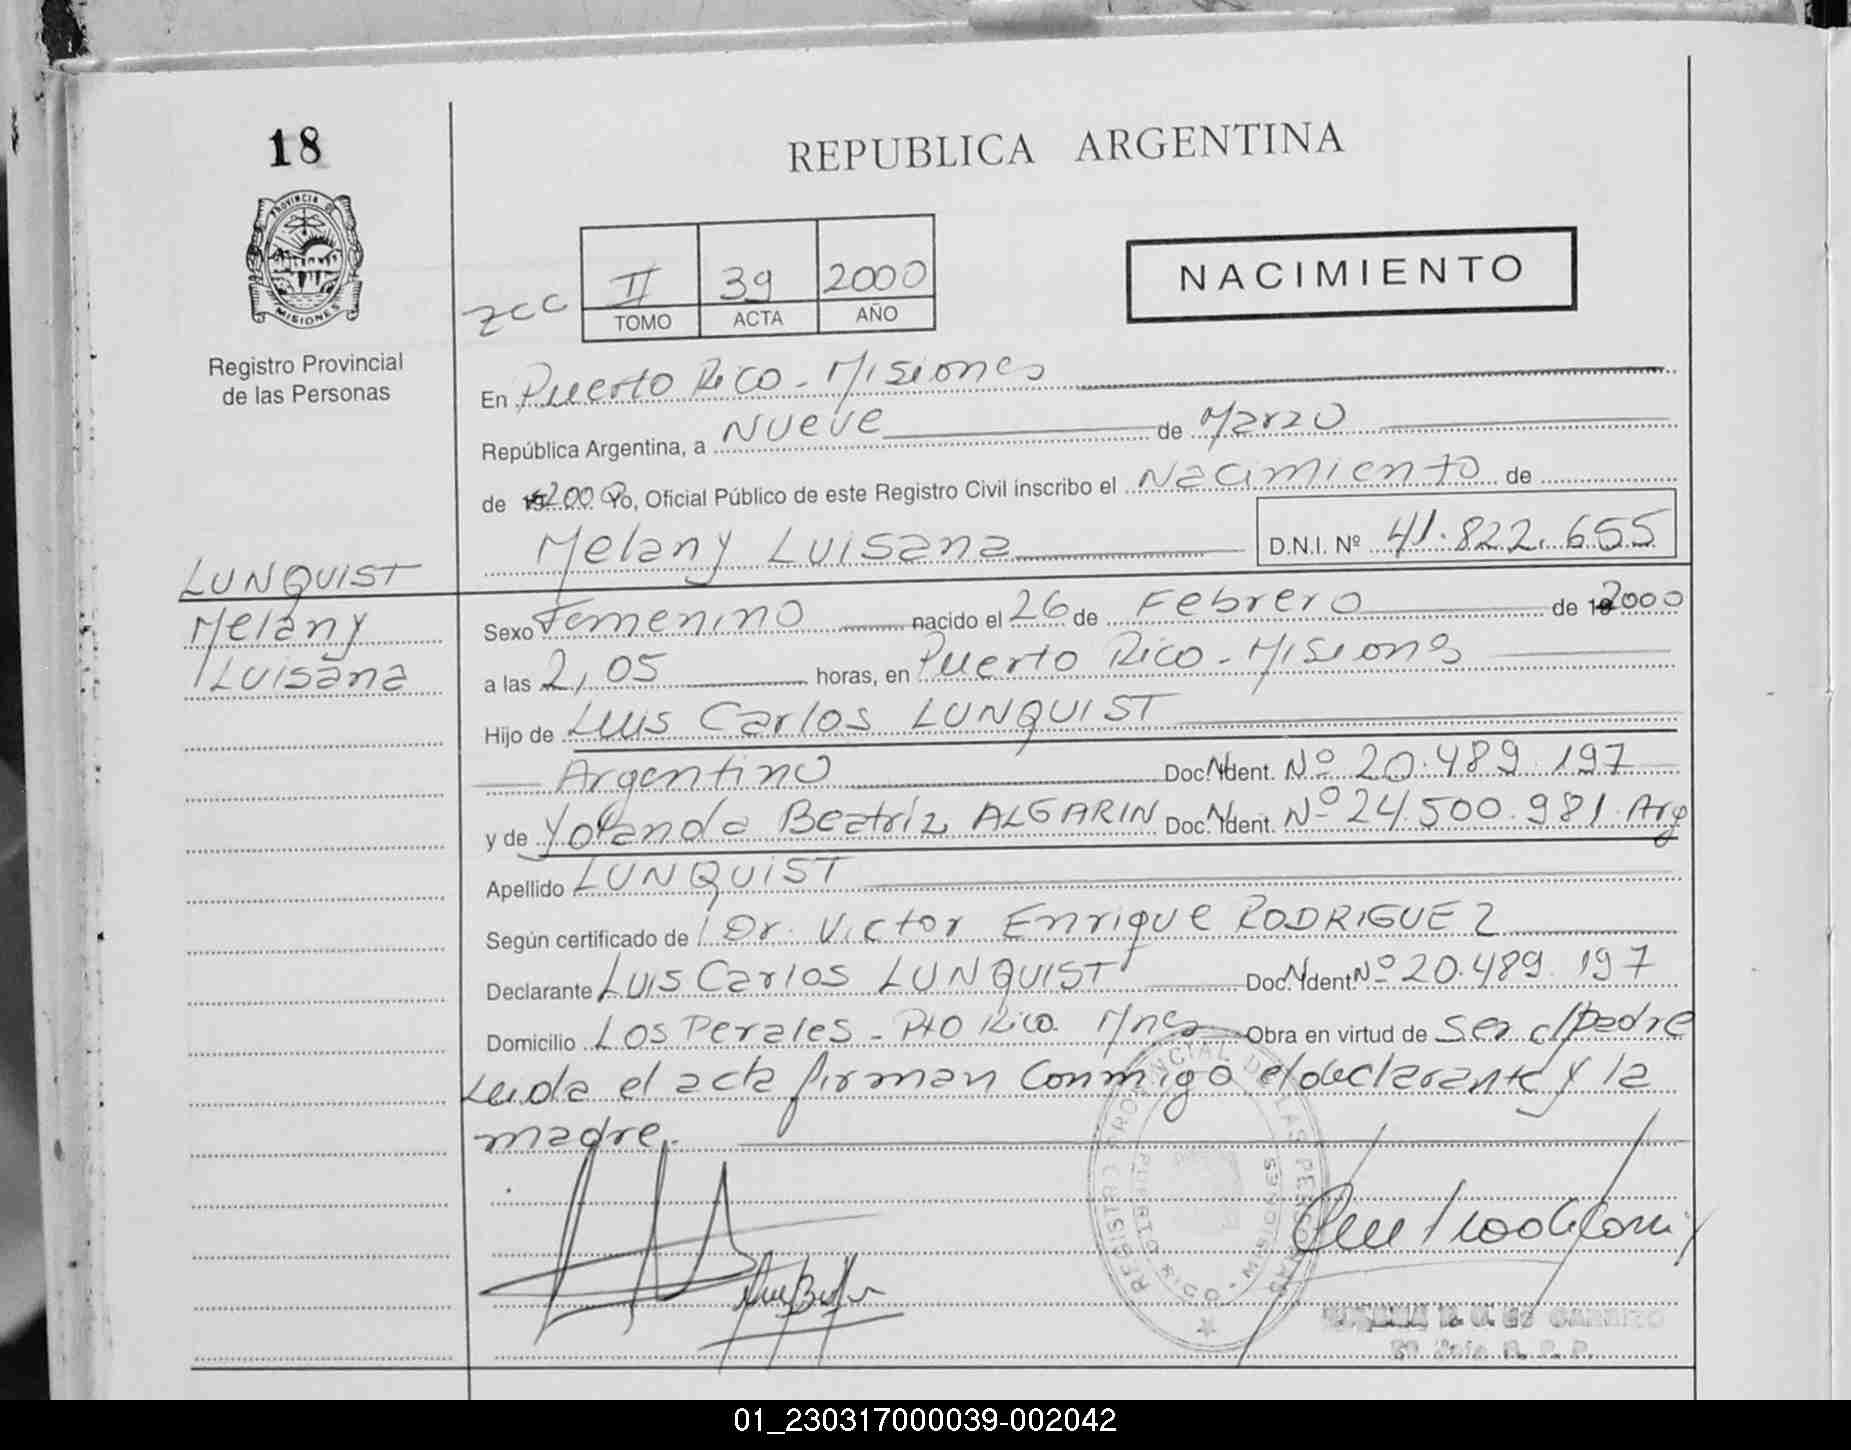 18
PROVINCIA DE
MISIONES
Registro Provincial
de las Personas
LUNQUIST
Melany
Luisana
REPUBLICA ARGENTINA
zcc
II 39 2000
TOMO ACTA AÑO
NACIMIENTO
En Puerto Rico - Misiones
República Argentina, a Nueve de Marzo
de 2000 Yo, Oficial Público de este Registro Civil inscribo el Nacimiento de
Melany Luisana D.N.I. Nº 41.822.655
Sexo Femenino nacido el 26 de Febrero de 2000
a las 2,05 horas, en Puerto Rico - Misiones
Hijo de Luis Carlos LUNQUIST
Argentino Doc. Ident. Nº 20.489.197
y de Yolanda Beatriz ALGARIN Doc. Ident. Nº 24.500.981. Arg
Apellido LUNQUIST
Según certificado de Dr. Victor Enrique RODRIGUEZ
Declarante Luis Carlos LUNQUIST Doc. Ident Nº 20.489.197
Domicilio Los Perales - Pto Rico. Mnes Obra en virtud de ser el padre
Leida el acta firman conmigo el declarante y la
madre.
REGISTRO PROVINCIAL DE LAS PERSONAS
MISIONES
01_230317000039-002042